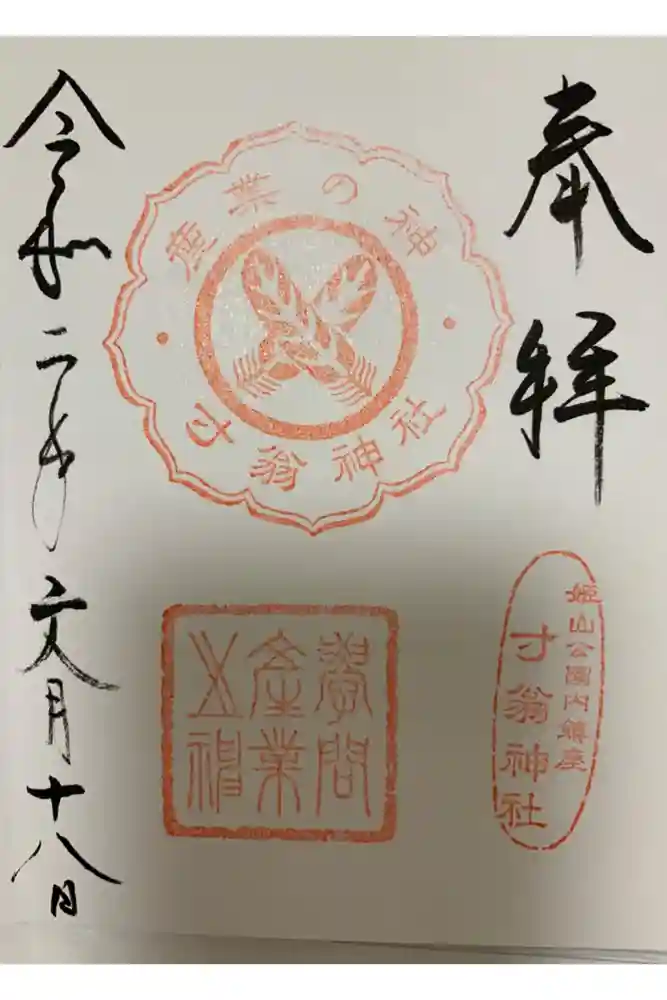 奉拝
産業の神
寸翁神社
姫山公園内鎮座
寸翁神社
學問
産業
之神
令和二年文月十八日